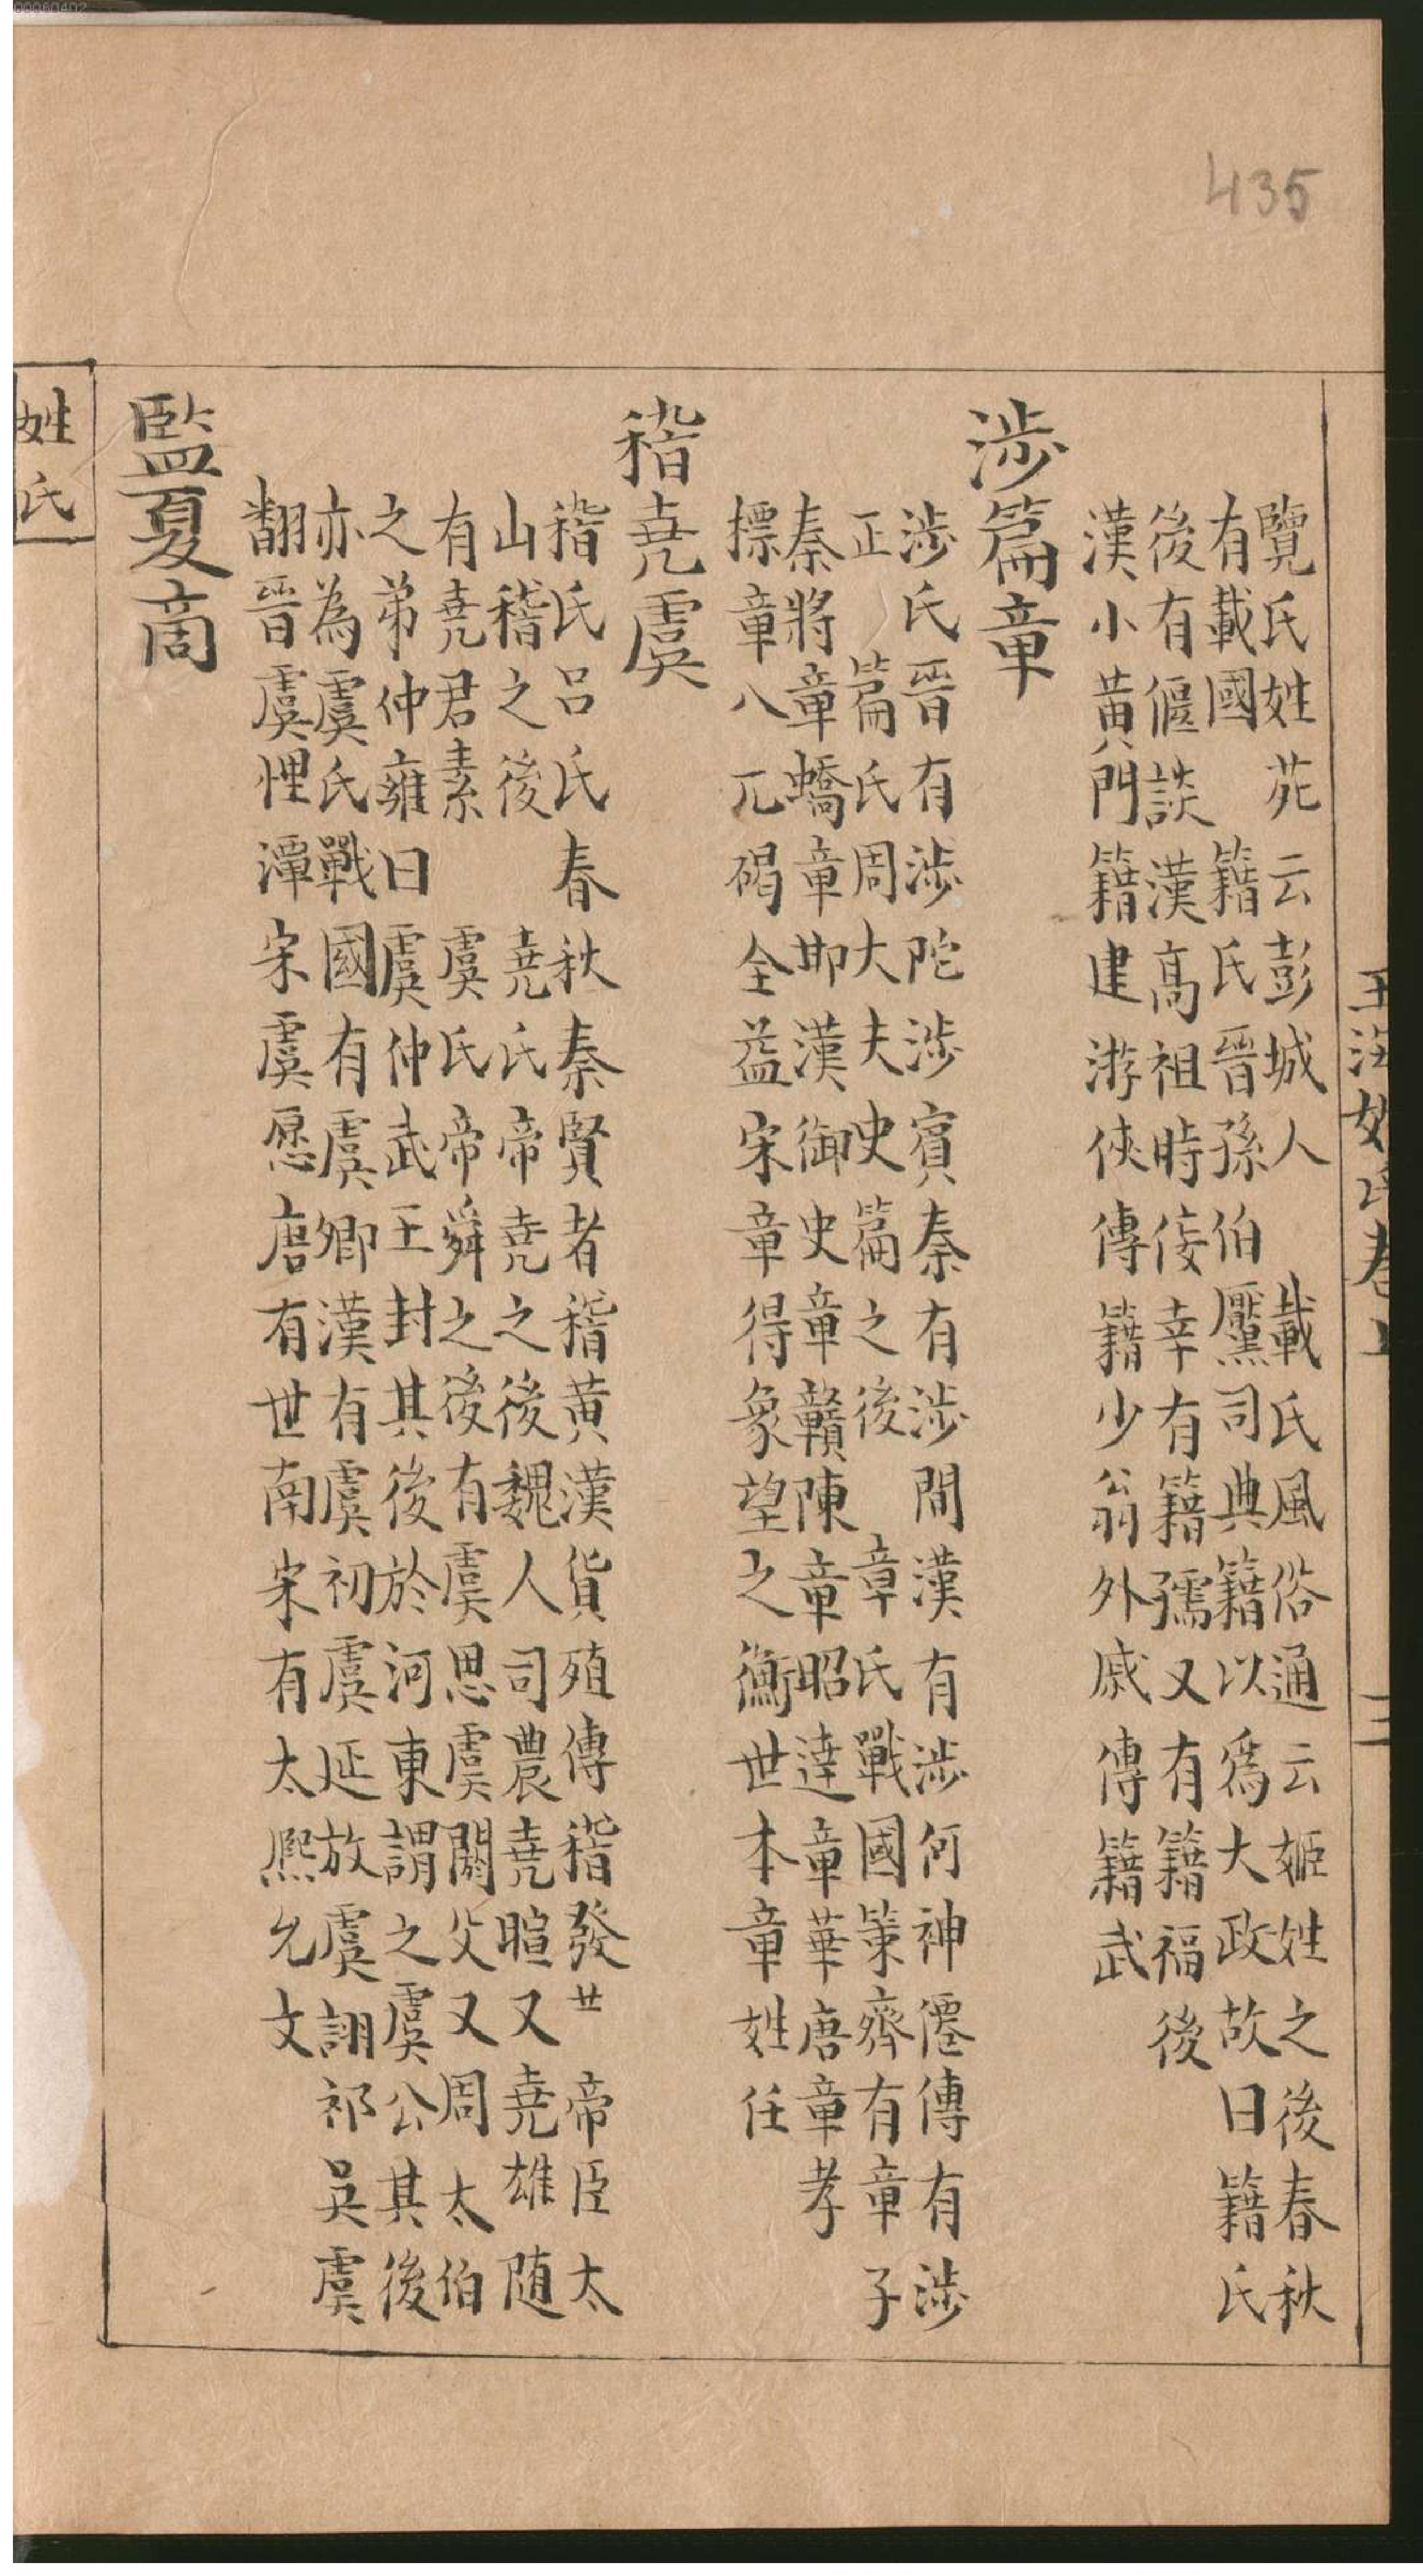 00060402
435
玉海姓氏卷上
三
覽氏姓苑云彭城人　載氏風俗通云姬姓之後春秋
有載國　籍氏晉孫伯黶司典籍以為大政故曰籍氏
後有偃談漢高祖時佞幸有籍孺又有籍福後
漢小黃門籍建游俠傳籍少翁外戚傳籍武
涉篇章
涉氏晉有涉陀涉賓秦有涉間漢有涉何神僊傳有涉
正　篇氏周大夫史篇之後　章氏戰國策齊有章子
秦將章蟜章邯漢御史章贛陳章昭達章華唐章孝
標章八元碣全益宋章得象望之衡世本章姓任
稽堯虞
稽氏呂氏春秋秦賢者稽黃漢貨殖傳稽發廿　帝臣太
山稽之後　堯氏帝堯之後魏人司農堯暄又堯雄隨
有堯君素　虞氏帝舜之後有虞思虞閼父又周太伯
之弟仲雍曰虞仲武王封其後於河東謂之虞公其後
亦為虞氏戰國有虞卿漢有虞初虞延放虞詡祁吳虞
翻晉虞悝潭宋虞愿唐有世南宋有太熈允文
監夏商
姓氏